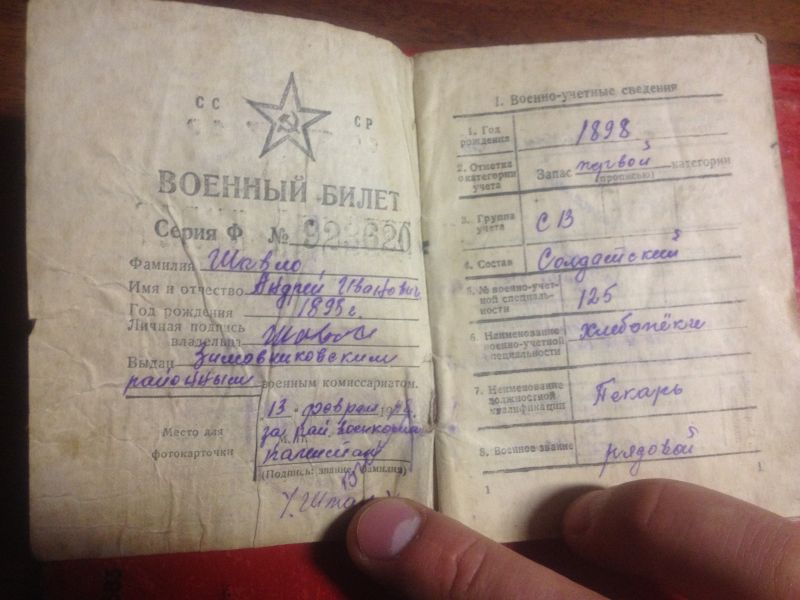 СС СР
ВОЕННЫЙ БИЛЕТ
Серия Ф № 923620
Фамилия Шавло
Имя и отчество Андрей Иванович
Год рождения 1898 г.
Личная подпись
владельца
Выдан Зимовниковским
районным военным комиссариатом.
13 феврал 194
за рай военкома
капитан
Место для
фотокарточки
(Подпись: звание, фамилия)
I. Военно-учетные сведения
1. Год
рождения
1898
2. Отметка
о категории
учета
Запас первой категории
(прописью)
3. Группа
учета
СВ
4. Состав
Солдатский
5. № военно-учет-
ной специаль-
ности
125
6. Наименование
военно-учетной
специальности
Хлебопёки
7. Наименование
должностной
квалификации
Пекарь
8. Военное звание
рядовой
1
1